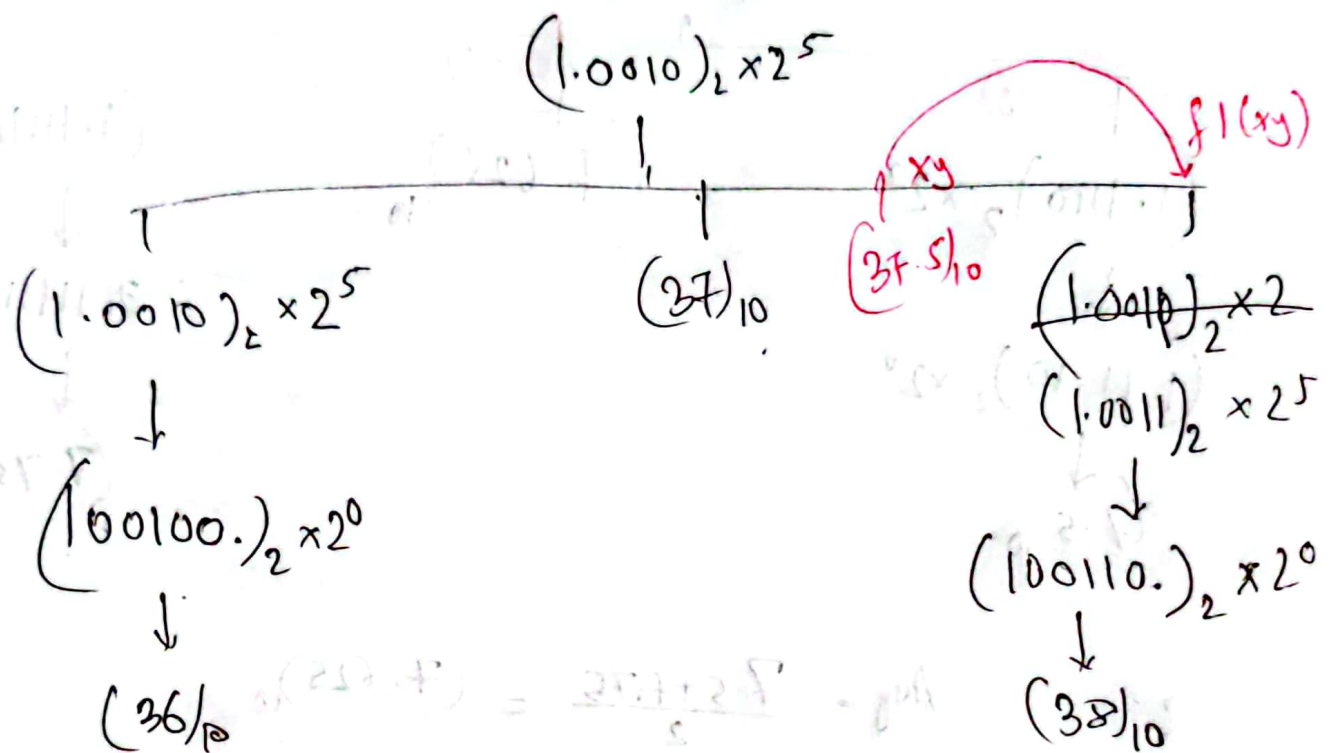 (1.0010)₂ ×2⁵
fl(xy)
xy
(1.0010)₂ ×2⁵
(37)₁₀
(37.5)₁₀
(1.0011)₂ ×2⁵
(100100.)₂ ×2⁰
(100110.)₂ ×2⁰
(36)₁₀
(38)₁₀